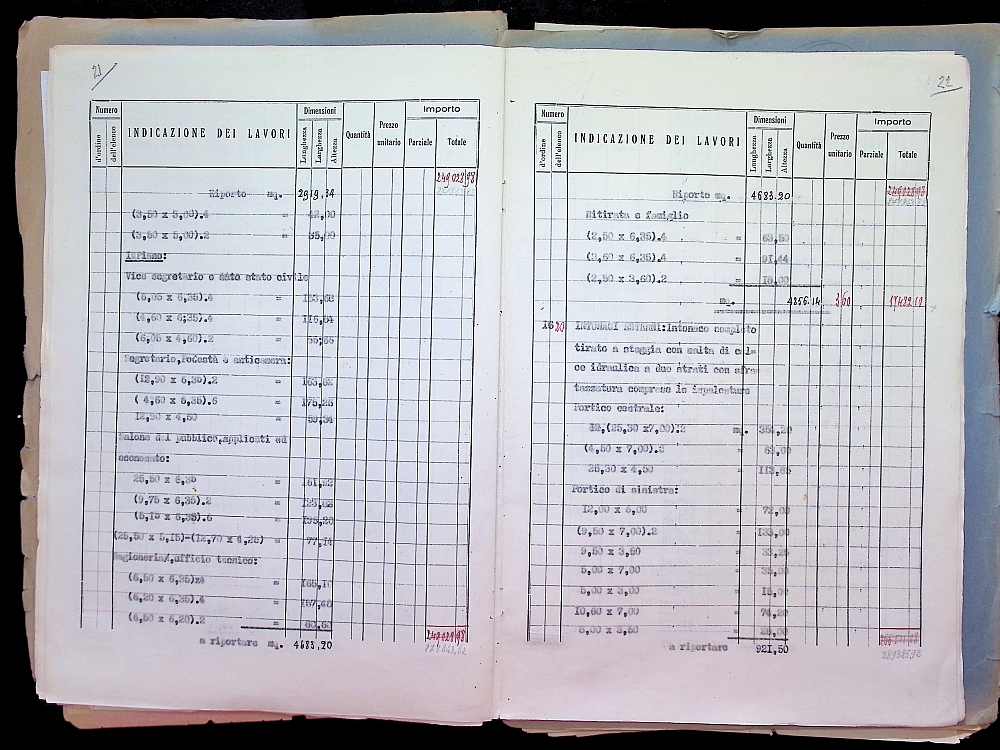 21
Numero
d'ordine
dell'elenco
INDICAZIONE DEI LAVORI
Dimensioni
Lunghezza
Larghezza
Altezza
Quantità
Prezzo
unitario
Importo
Parziale
Totale
249.028,98
Riporto mq. 2919.34
(3,50 x 3,00).4 = 42,00
(3,50 x 5,00).2 = 35,00
I&Piano:
Vice segretario e stato civile
(6,05 x 6,35).4 = 153,68
(4,60 x 6;35).4 = 116,84
(6,05 x 4,60).2 = 55,66
Segretario,Podestà e anticamera:
(12,90 x 6,35).2 = 163,82
( 4,60 x 6,35).6 = 175,25
12,90 x 4,60 = 59,34
Salone del pubblico,Applicati ed
economato:
25,50 x 6,35 = 161,92
(9,75 x 6,35).2 = 123,82
(5,15 x 6,35).6 = 196,20
(25,50 x 5,15)-(12,70 x 4,25) = 77,14
Ragioneria/,ufficio tecnico:
(6,50 x 6,35)x4 = 165,10
(6,20 x 6,35).4 = 157,48
(6,50 x 6,20).2 = 80,60
249.028,98
a riportare mq. 4683,20
22
Numero
d'ordine
dell'elenco
INDICAZIONE DEI LAVORI
Dimensioni
Lunghezza
Larghezza
Altezza
Quantità
Prezzo
unitario
Importo
Parziale
Totale
249.028,98
Riporto mq. 4683.20
Ritirata e famiglio
(2,50 x 6,35).4 = 63,50
(3,60 x 6,35).4 = 91,44
(2,50 x 3,60).2 = 18,00
mq. 4856.14 3,60 17482.10
16 20 INTONACI ESTERNI:Intonaco completo
tirato a staggia con malta di cal=
ce idraulica a due strati con sfra=
tazzatura compreso le impalcature
Portico centrale:
(25,30 x7,00).2 mq. 354,20
(4,50 x 7,00).2 = 63,00
25,30 x 4,50 113,85
Portico di sinistra:
12,00 x 6,00 = 72,00
(9,50 x 7,00).2 = 133,00
9,50 x 3,50 = 33,25
5,00 x 7,00 = 35,00
5,00 x 3,00 = 15,00
10,60 x 7,00 = 74,20
8,00 x 3,50 = 28,00
289385.92
a riportare 921,50